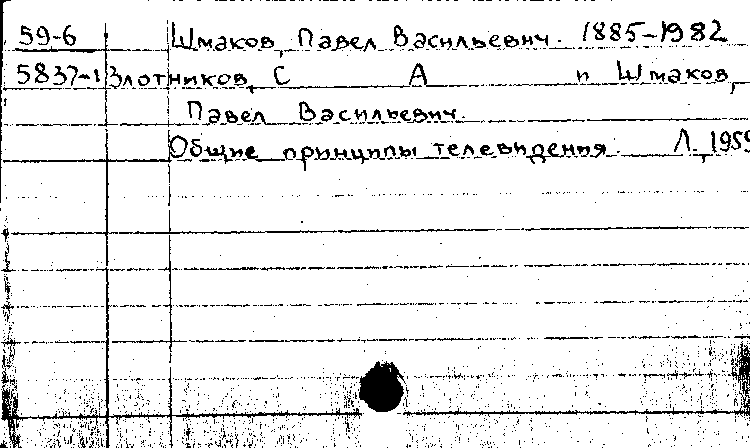 59-6 Шмаков, Павел Васильевич. 1885-1982
5837-1 Злотников, С А и Шмаков,
Павел Васильевич.
Общие принципы телевидения. Л., 1959